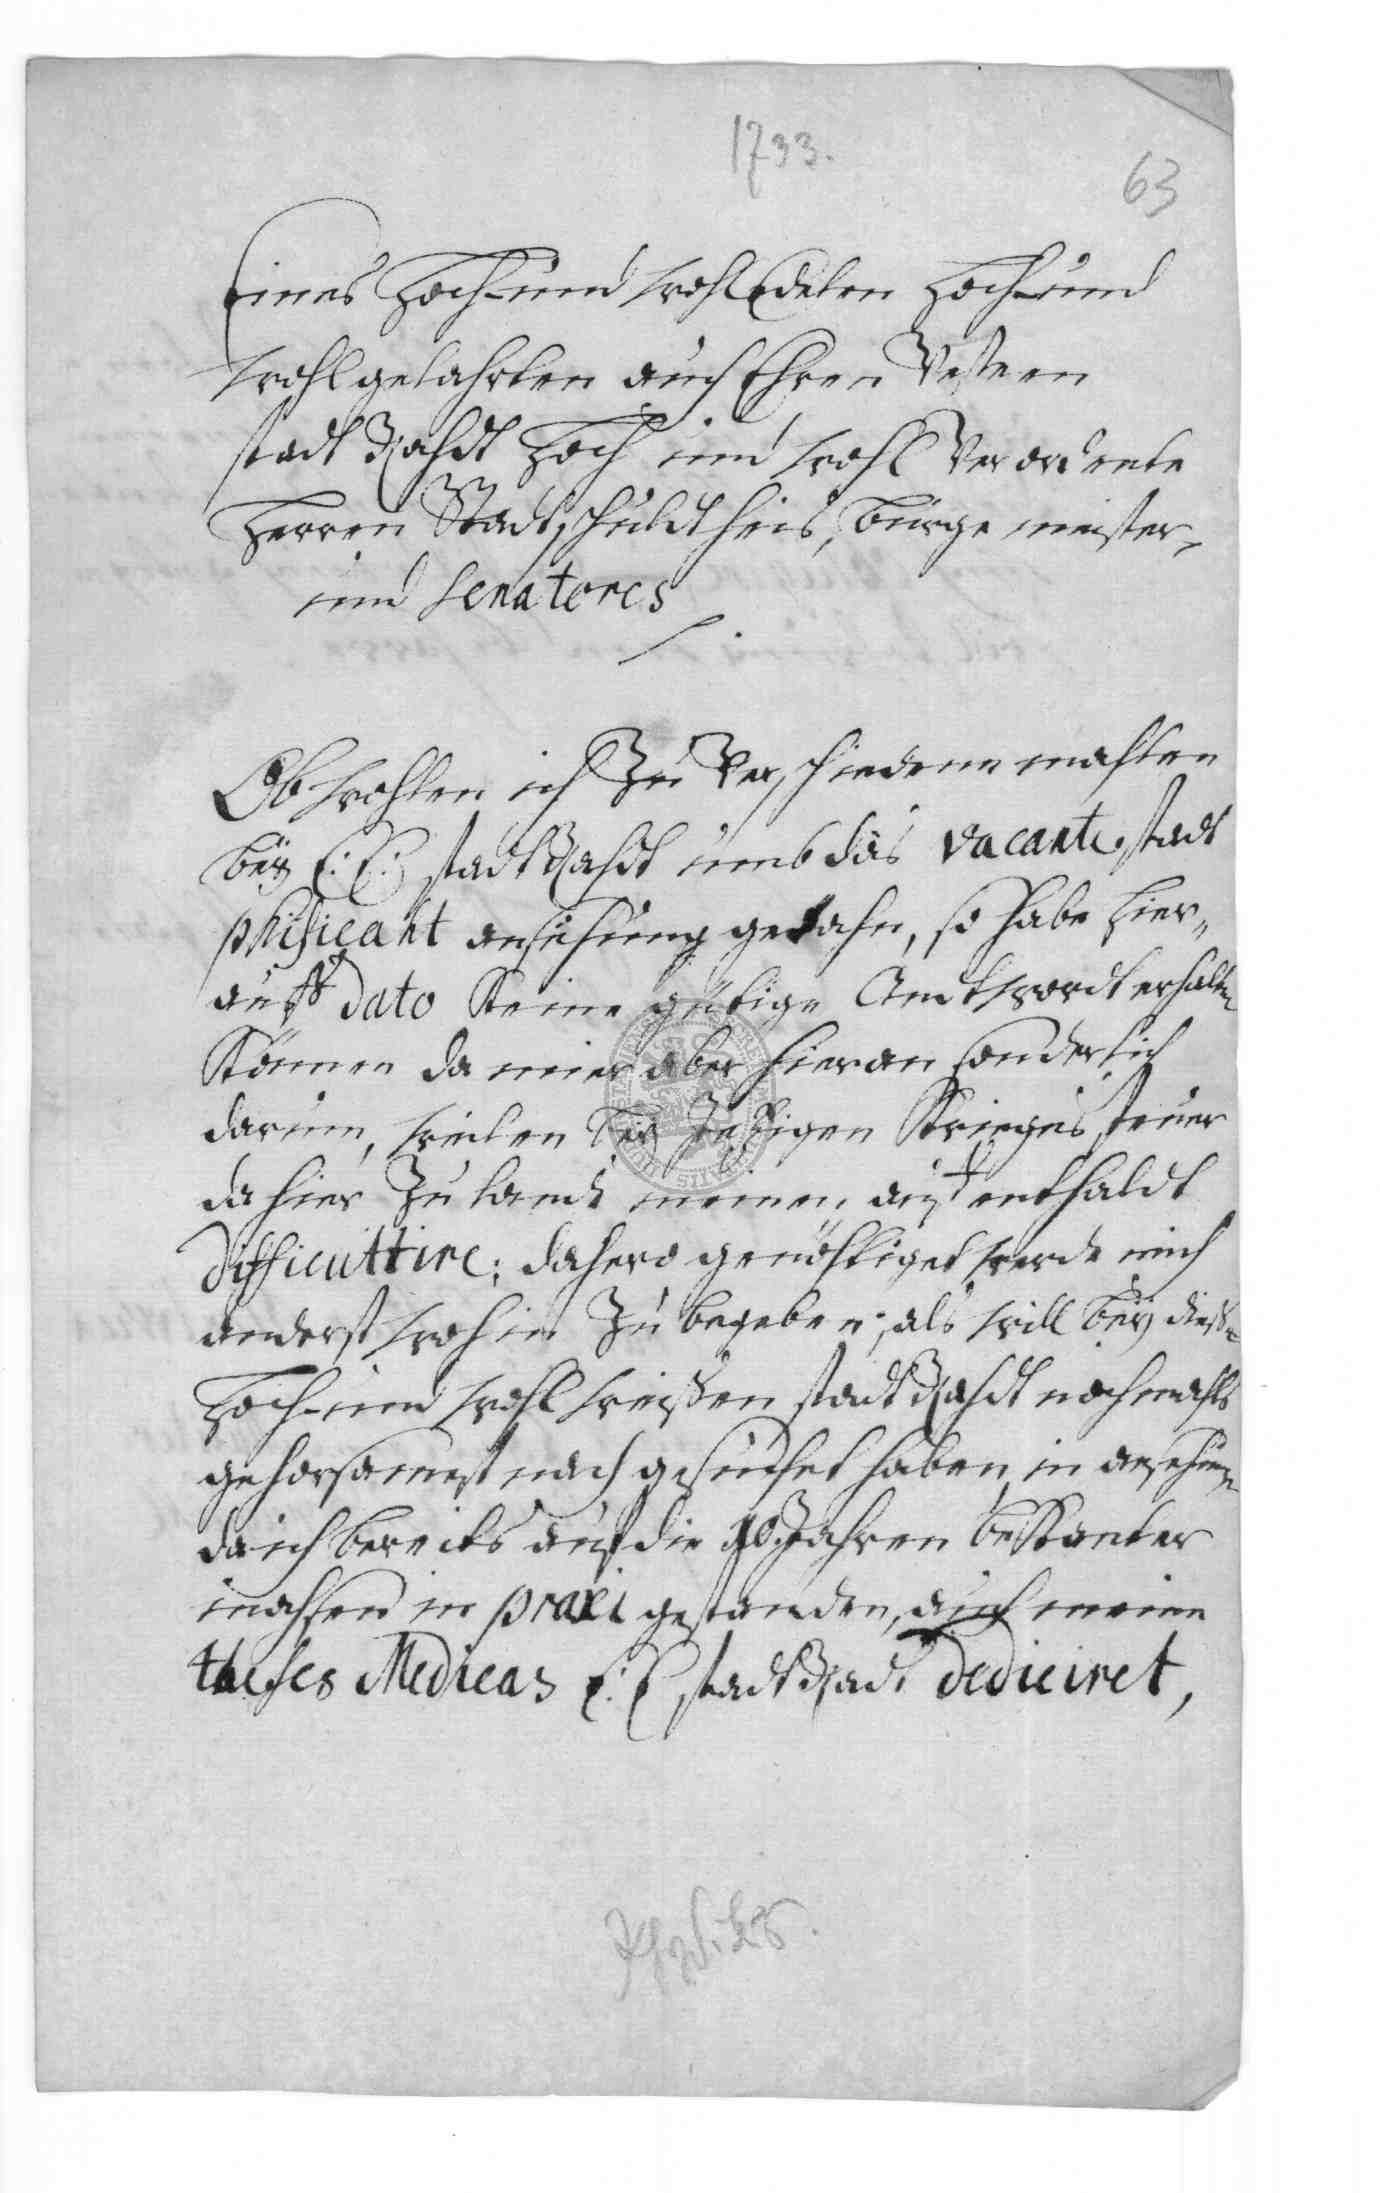 1733.
63
Eines Hoch- und wohl Edelen Hoch- und
wohlgelahrten auch Ehren Vesten
stadt Rahdt Hoch und wohl Verordente
Herren Stadtschuldtheis, Bürge meister,
und Senatores
Ob wohlen ich Zu Verschiedene mahlen
beÿ E: E: stadt Rahdt umb das vacante stadt
phisicaht ansuhung gethan, so habe hier„
auff dato Keine gütige Andtwordt erhalten
Können da mier aber hieran sonderlich
darum, weilen beÿ jetzigen Kriegs steuer
da hier Zu landt meinen auffenthaldt
difficultire; dahero genöhtiget werde mich
anderst wohin Zu begeben; als will beÿ diesen
Hoch- und wohl weißen stadt Rahdt nochmahls
gehorsamest nach gesuchet haben, in ansehung
da ich bereits auf die 10 Jahren bekanter
mahßen in praxi gestanden, auch meine
theses Medicas E: E stadt Radt dediciret,